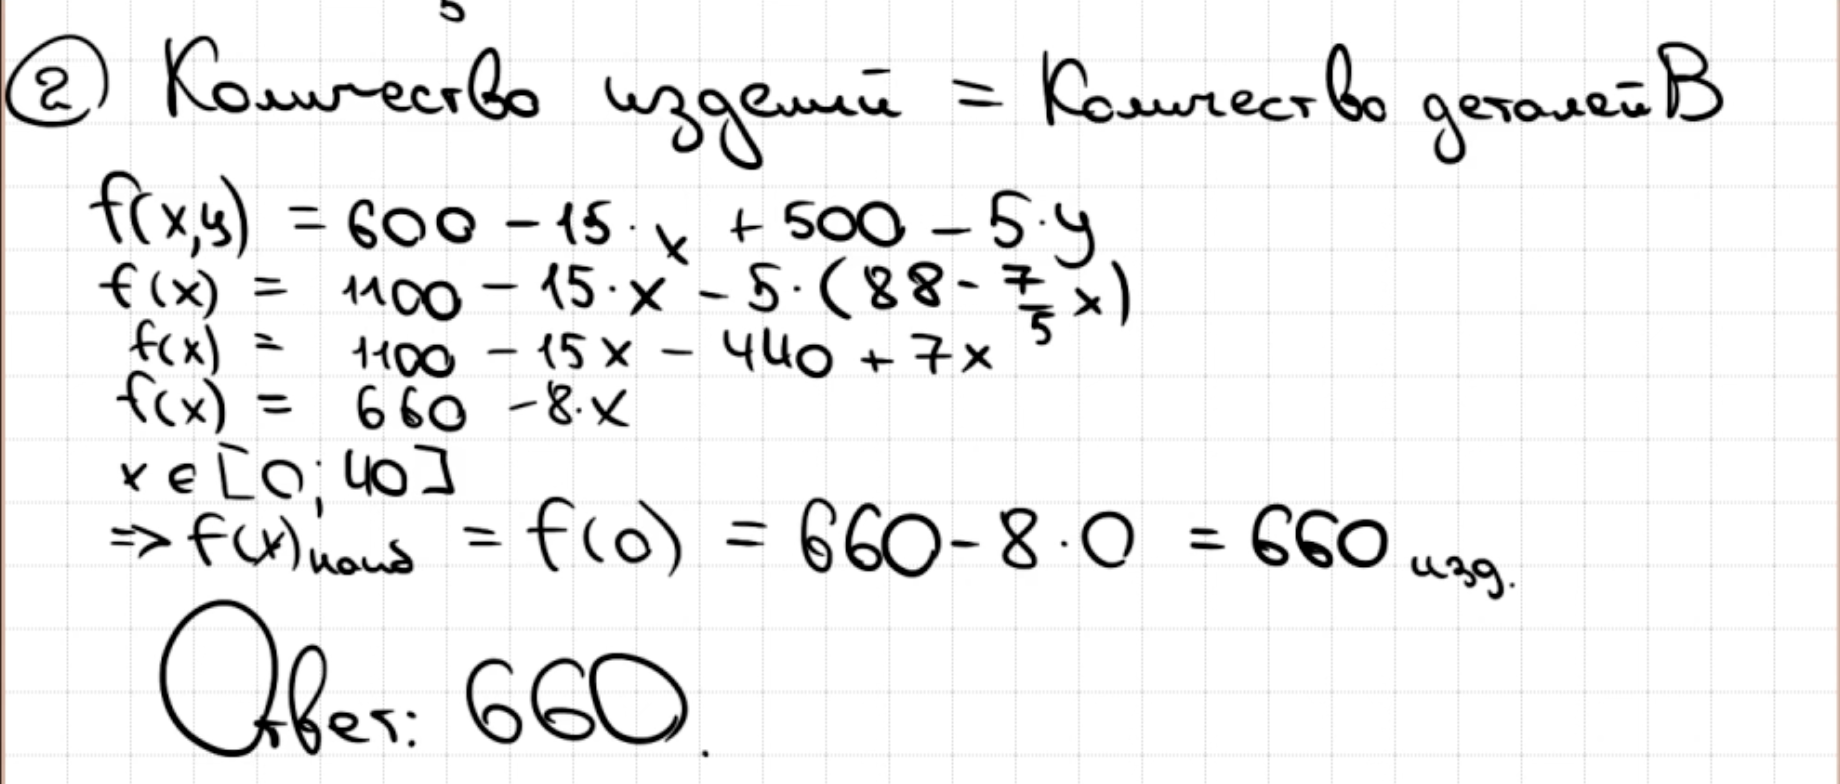 5
② Количество изделий = Количество деталей B
f(x,y) = 600 - 15·x + 500 - 5·y
f(x) = 1100 - 15·x - 5·(88 - 7/5 x)
f(x) = 1100 - 15x - 440 + 7x
f(x) = 660 - 8·x
x ∈ [0; 40]
⇒ f(x)наиб = f(0) = 660 - 8·0 = 660 изд.
Ответ: 660.